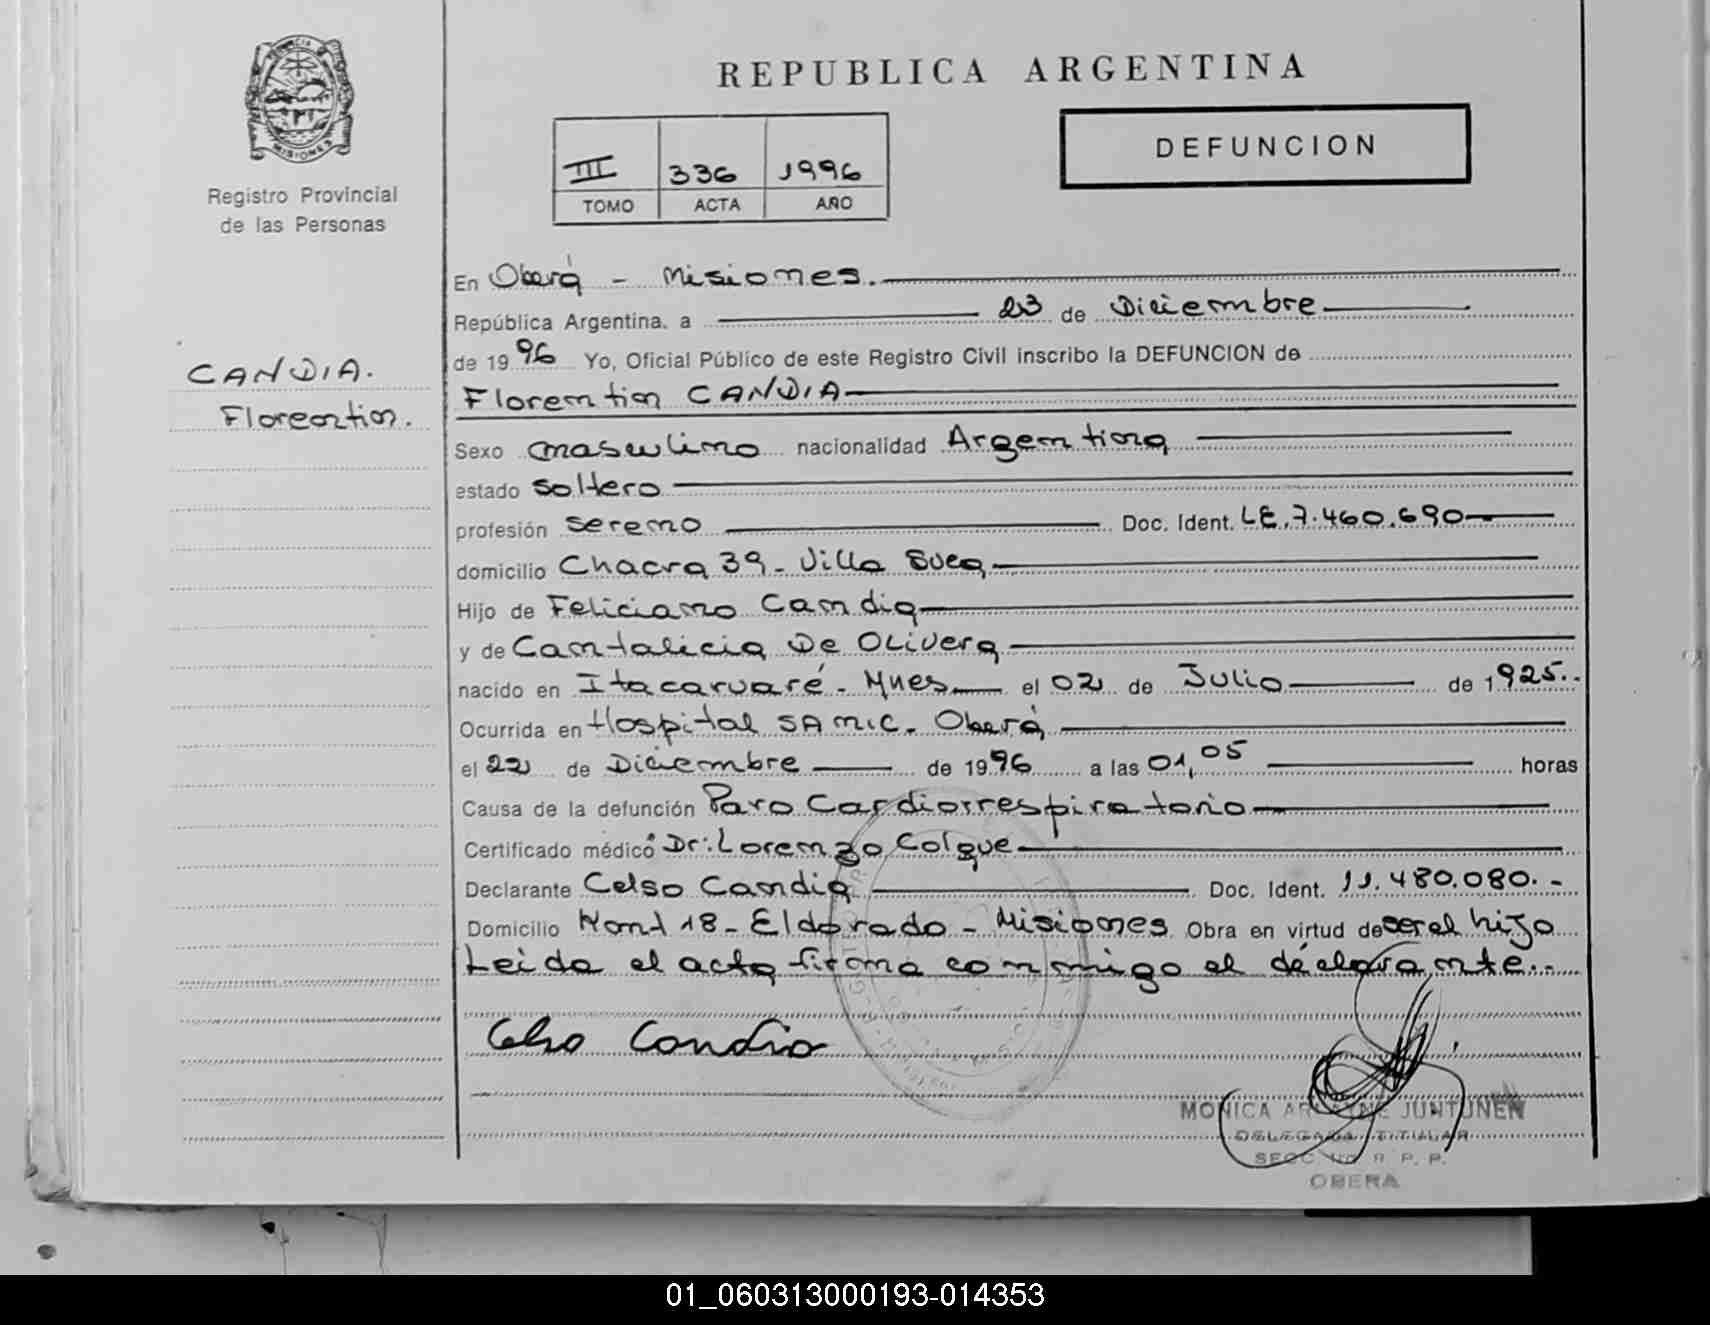 PROVINCIA D
MISIONES
Registro Provincial
de las Personas
CANDIA.
Florentin.
REPUBLICA ARGENTINA
III 336 1996
TOMO ACTA AÑO
DEFUNCION
En Oberá - Misiones.
República Argentina, a 23 de Diciembre
de 1996 Yo, Oficial Público de este Registro Civil inscribo la DEFUNCION de
Florentin CANDIA
Sexo masculino nacionalidad Argentina
estado soltero
profesión sereno Doc. Ident. LE.7.460.690
domicilio Chacra 39- Villa Suea
Hijo de Feliciano Candia
y de Cantalicia De Olivera
nacido en Itacaruaré- Mnes el 02 de Julio de 1925.-
Ocurrida en Hospital SAMIC. Oberá
el 22 de Diciembre de 1996 a las 01,05 horas
Causa de la defunción Paro Cardiorrespiratorio
Certificado médico Dr: Lorenzo Colque
Declarante Celso Candia Doc. Ident. 11.480.080.-
Domicilio Km 18- Eldorado - Misiones Obra en virtud de ser el hijo
Leida el acta firma conmigo el declarante.-
Celso Candia
MONICA JUNTUNEN
DELEGADA TITULAR
SECC R. P. P.
OBERA
01_060313000193-014353